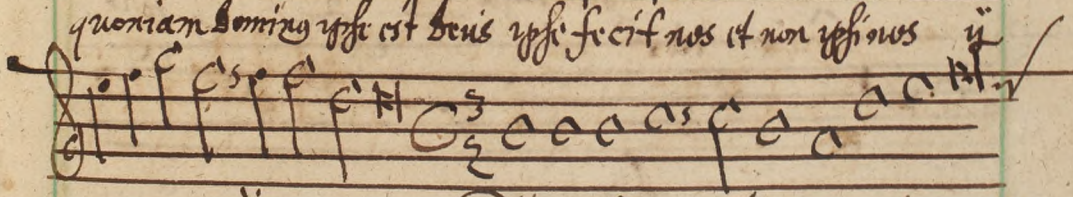 quoniam dominus ipse est deus ipse fecit nos et non ipsi nos ij